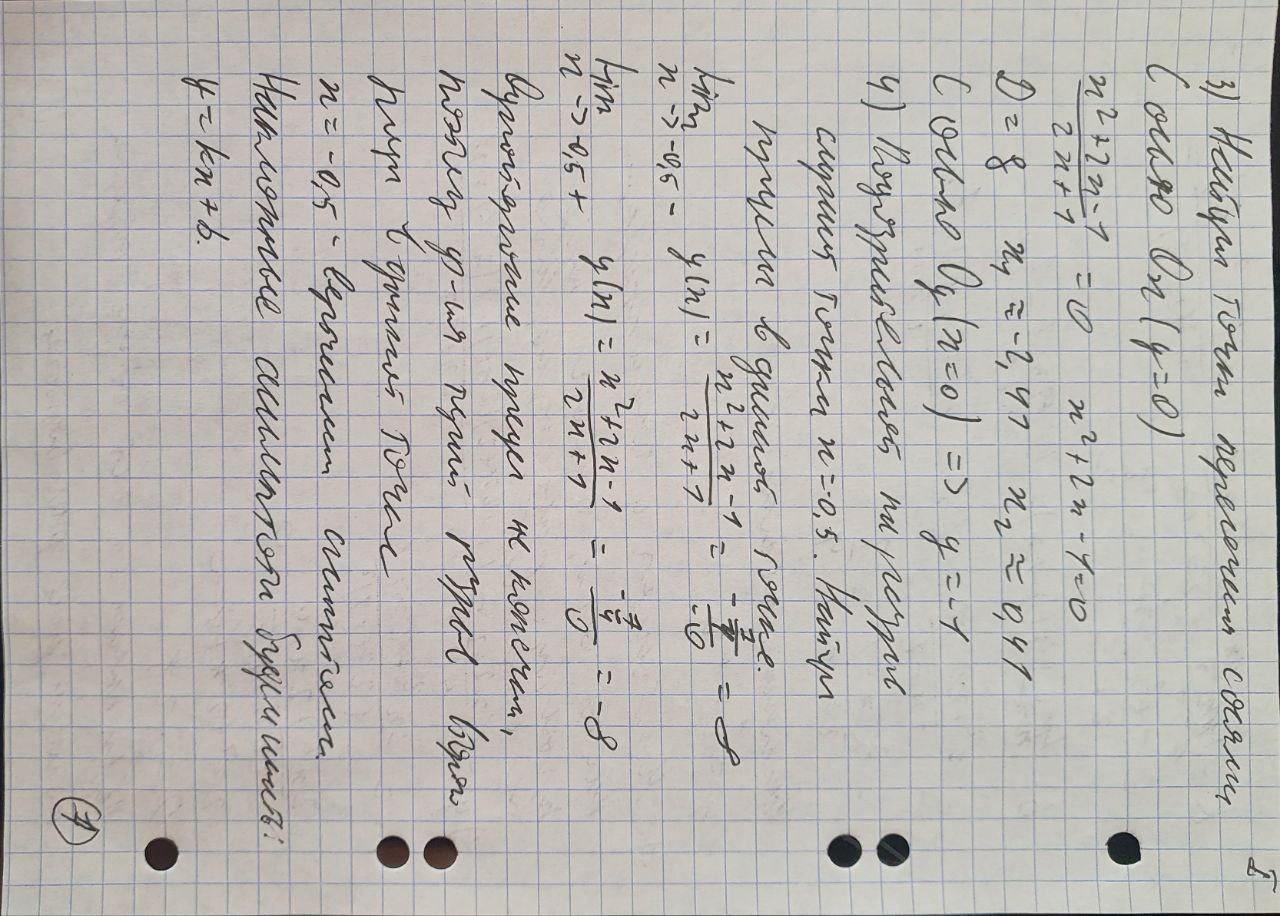 I
3) Найдём точки пересечения с осями
С осью Ox (y=0)
x²+2x-1/2x+1 = 0 x²+2x-1=0
D = 8 x₁ ≈ -2,41 x₂ ≈ 0,41
С осью Oy (x=0) => y = -1
4) Подозрительной на разрыв
служит точка x=-0,5. Найдём
пределы в данной точке.
lim x->-0,5- y(x) = x²+2x-1/2x+1 = -7/4/-0 = ∞
lim x->-0,5+ y(x) = x²+2x-1/2x+1 = -7/4/0 = -∞
Односторонние предел не конечен,
поэтому ф-ия терпит разрыв второго
рода в данной точке
x = -0,5 - вертикальная асимптота.
Наклонные асимптоты будем искать:
y = kx + b.